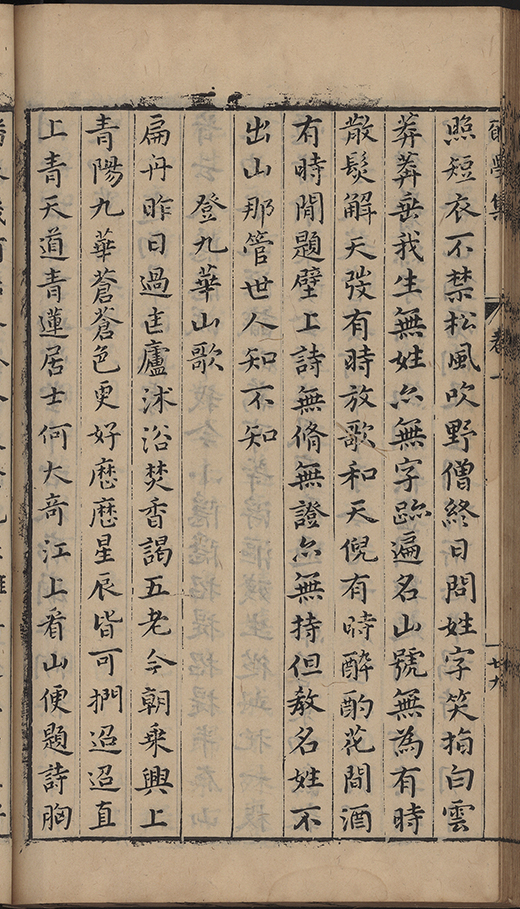 照短衣不禁松風吹野僧終日問姓字笑指白雲
莽莽垂我生無姓亦無字跡遍名山號無為有時
散髮解天弢有時放歌和天倪有時醉酌花間酒
有時閒題壁上詩無脩無證亦無持但教名姓不
出山那管世人知不知
登九華山歌
扁舟昨日過匡廬沐浴焚香謁五老今朝乘興上
青陽九華蒼蒼色更好歷歷星辰皆可捫迢迢直
上青天道青蓮居士何大奇江上看山便題詩胸
集
卷一
廿九